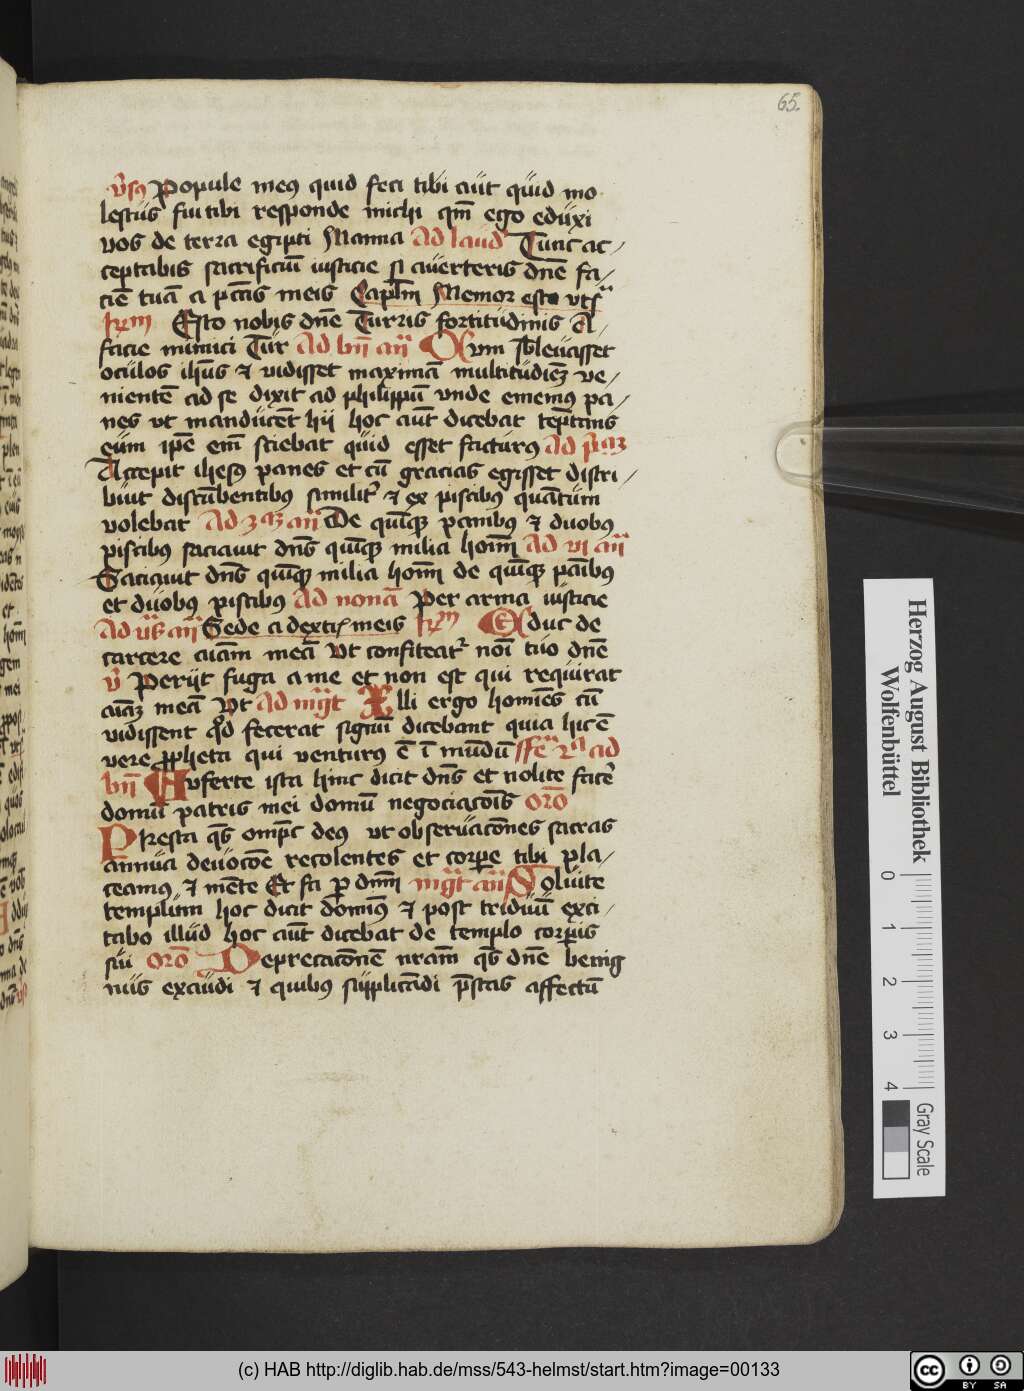 65.
v̄sꝯ Popule meꝯ quid feci tibi aūt quid mo
lestus fui tibi responde michi qm̄ ego eduxi
vos de terra egipti Manna Ad laud Tunc ac
ceptabis sacrificiū iusticie si auerteris dn̄e fa
ciē tuā a pctīs meis Capl̄m Memor esto vts
hym Esto nobis dn̄e Turris fortitudinis A
facie inimici Tur Ad bn̄ an̄ Cvm sb̄leuasset
oculos ih̄us ⁊ vidisset maximā multitudiēꝫ ve
nientē ad se dixit ad philippū vnde ememꝯ pa
nes vt manducēt hij hoc aūt dicebat tēptans
eum ip̄e em̄ sciebat quid esset facturꝯ Ad p̄maꝫ
Accepit ihesꝯ panes et cū gracias egisset distri
buit discūbentibꝯ similit̄ ⁊ ex piscibꝯ quātum
volebat Ad 3aꝫ an̄ De quīqꝫ panibꝯ ⁊ duobꝯ
piscibꝯ saciauit dn̄s quīqꝫ milia hoīm Ad vi an̄
Saciauit dn̄s quīqꝫ milia hoīm de quīqꝫ pāibꝯ
et duobꝯ piscibꝯ Ad nonā Per arma iusticie
Ad vs̄ an̄ Sede a dextis meis hym Educ de
carcere aīam meā Vt confiteat̄ noī tuo dn̄e
v̄ Perijt fuga a me et non est qui requirat
aīaꝫ meā Vt Ad mgt Illi ergo homīes cū
vidissent qd̄ fecerat signū dicebant quia hic ē
vere ꝓpheta qui venturꝯ ē ī mūdū ffē 2a ad
bn̄ Auferte ista hinc dicit dn̄s et nolite facē
domū patris mei domū negociacōis oro
Presta qs̄ omp̄c deꝯ vt obseruacōnes sacras
annua deuocōe recolentes et corpe tibi pla
ceamꝯ ⁊ mēte Et fa p dnm̄ mgt an̄ Soluite
templum hoc dicit dominꝯ ⁊ post triduū exci
tabo illud hoc aūt dicebat de templo corpis
sui oro Deprecacōnē nrām qs̄ dn̄e benig
nus exaudi ⁊ quibꝯ supplicādi p̄stas affectū
Herzog August Bibliothek
Wolfenbüttel
0 1 2 3 4
Gray Scale
(c) HAB http://diglib.hab.de/mss/543-helmst/start.htm?image=00133
cc BY SA